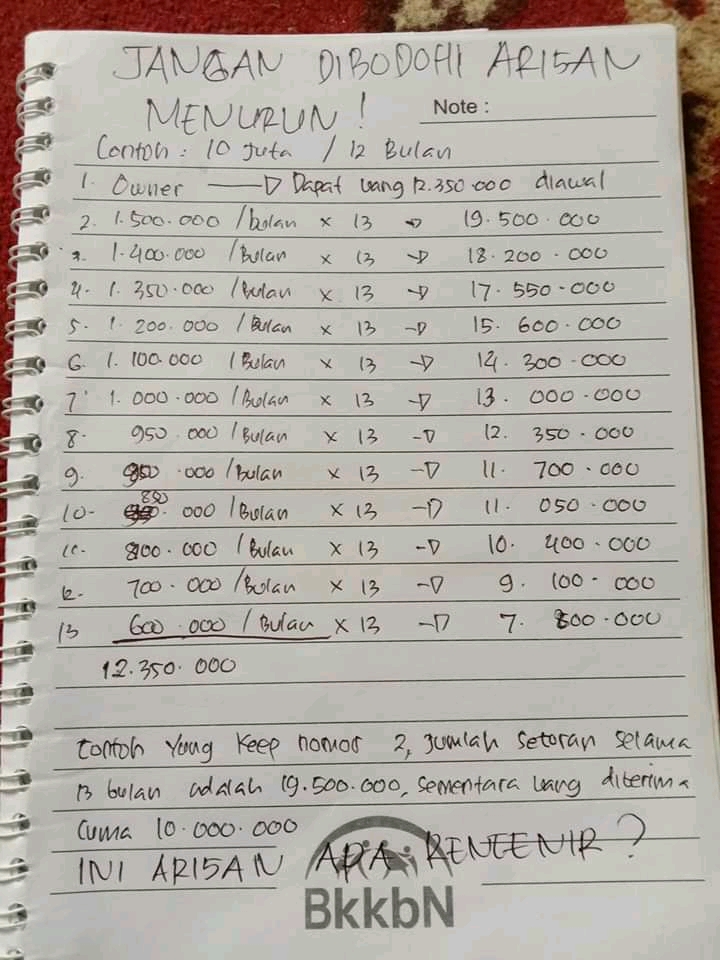 JANGAN DIBODOHI ARISAN
MENURUN! Note :
Contoh : 10 Juta / 12 Bulan
1. Owner → Dapat uang 12.350.000 diawal
2. 1.500.000 /bulan x 13 → 19.500.000
3. 1.400.000 /Bulan x 13 → 18.200.000
4. 1.350.000 /Bulan x 13 → 17.550.000
5. 1.200.000 /Bulan x 13 → 15.600.000
6. 1.100.000 /Bulan x 13 → 14.300.000
7. 1.000.000 /Bulan x 13 → 13.000.000
8. 950.000 /Bulan x 13 → 12.350.000
9. 900.000 /Bulan x 13 → 11.700.000
10. 850.000 /Bulan x 13 → 11.050.000
11. 800.000 /Bulan x 13 → 10.400.000
12. 700.000 /Bulan x 13 → 9.100.000
13 600.000 /Bulan x 13 → 7.800.000
12.350.000
Contoh Yang Keep nomor 2, jumlah setoran selama
13 bulan adalah 19.500.000, sementara uang diterima
Cuma 10.000.000
INI ARISAN APA RENTENIR?
BkkbN